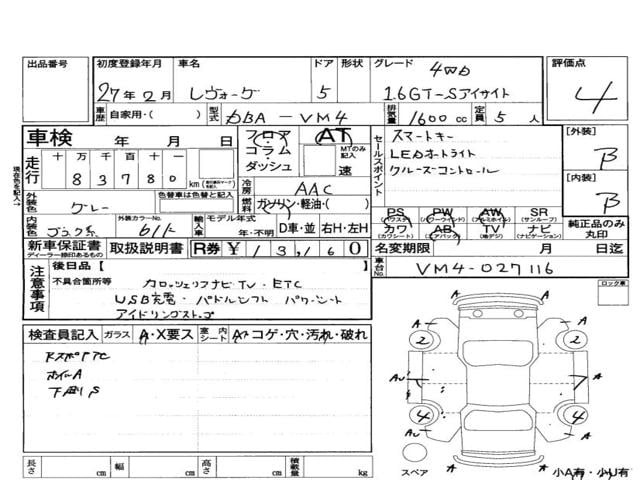 出品番号 初度登録年月 車名 ドア 形状 グレード 評価点
27年2月 レヴォーグ 5 4WD 1.6GT-Sアイサイト 4
車歴 自家用・( ) 型式 DBA-VM4 排気量 1600cc 定員 5人
車検 年 月 日 フロア コラム ダッシュ AT MTのみ記入 速
走行 十万千百十 83780 km
セールスポイント スマートキー
LEDオートライト
クルーズコントロール
[外装] B
[内装] B
冷房 AAC
外装色 グレー 色替車は色替と記入 燃料 ガソリン・軽油・( )
内装色 ブラック系 外装カラーNo. 61K 輸入車 モデル年式 年・不明 D車・並 右H・左H
PS PW AW SR
(パワステ) (パワーウィンド) (アルミホイル) (サンルーフ)
カワ AB TV ナビ
(カワシート) (エアバック) (地デジ) (ナビゲーション)
純正品のみ丸印
新車保証書 ディーラー捺印あるもの 取扱説明書 R券 ¥ 名変期限 月 日迄
車台No. VM4-027116
注意事項 後日品【 】
不具合箇所等 カロッツェリアナビTV・ETC
USB充電・パドルシフト パワーシート
アイドリングストップ
ロック車
検査員記入 ガラス A・X要ス 室内シート Aス コゲ・穴・汚れ・破れ
ホイルA
下廻りS
2 2
A AU A
A A
4 4
AU A
A
スペア 小A有・小U有
長さ cm 幅 cm 高さ cm 積載量 kg